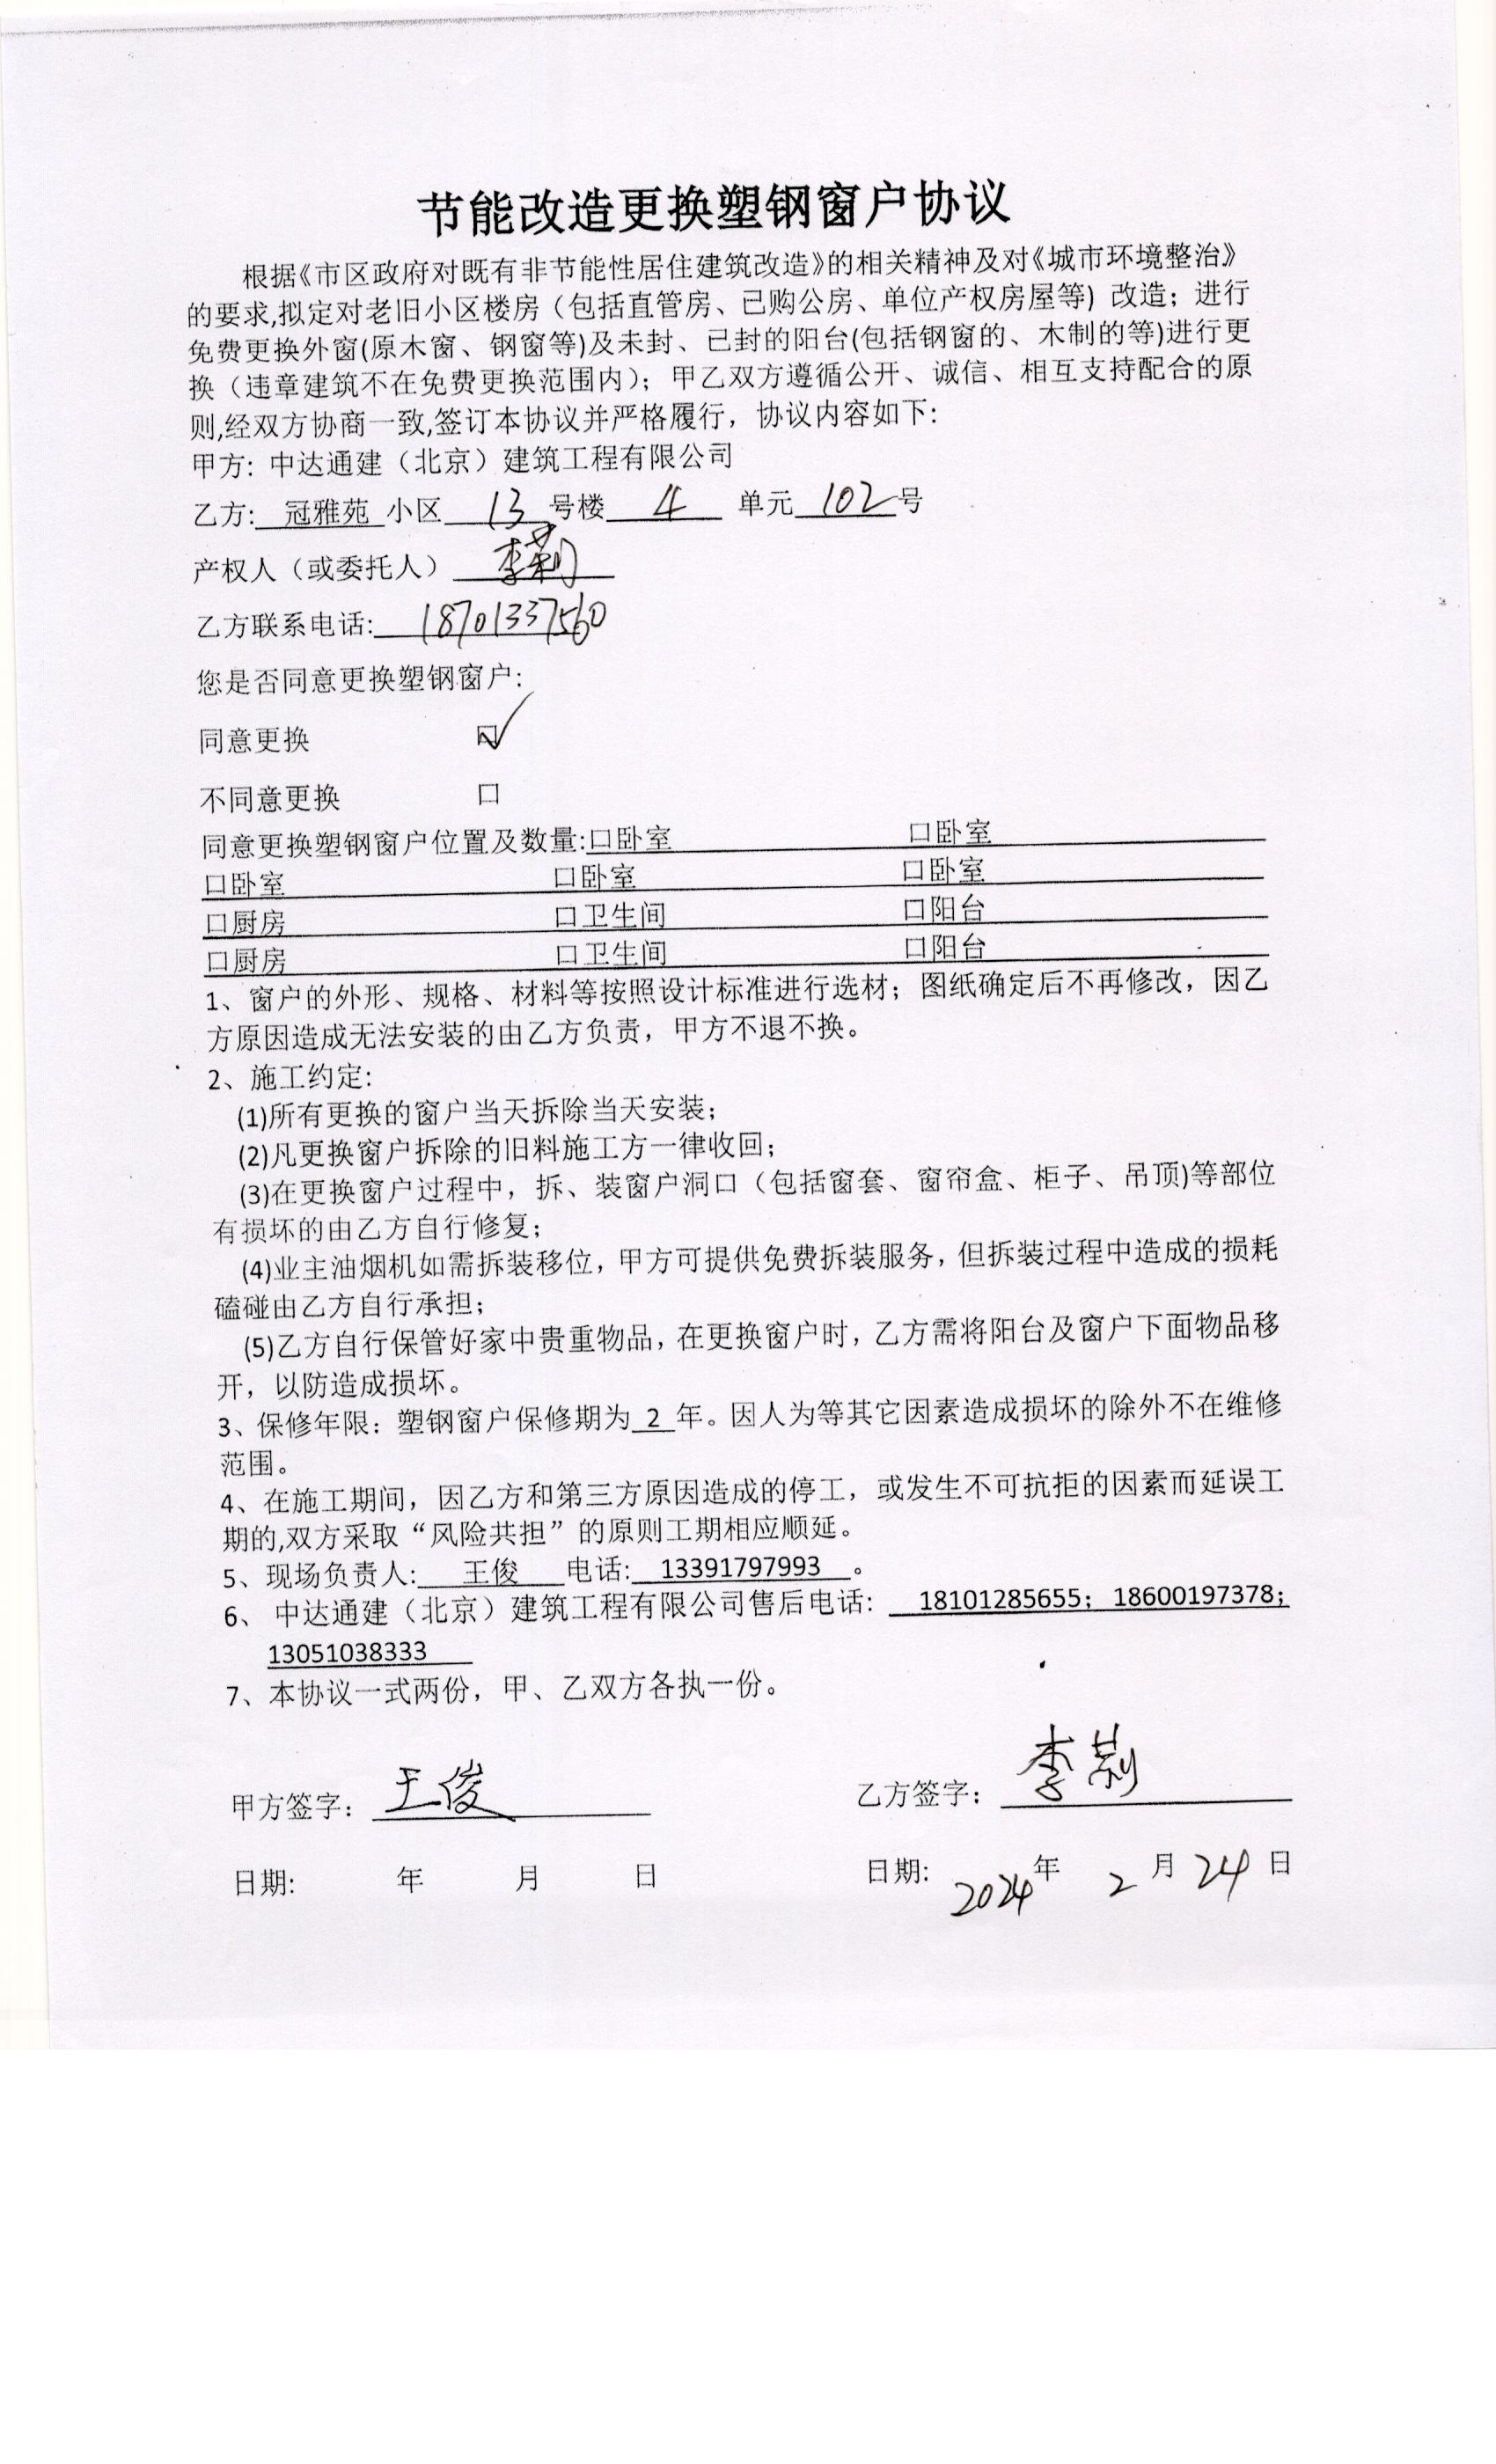 节能改造更换塑钢窗户协议
根据《市区政府对既有非节能性居住建筑改造》的相关精神及对《城市环境整治》
的要求,拟定对老旧小区楼房（包括直管房、已购公房、单位产权房屋等）改造；进行
免费更换外窗(原木窗、钢窗等)及未封、已封的阳台(包括钢窗的、木制的等)进行更
换（违章建筑不在免费更换范围内）；甲乙双方遵循公开、诚信、相互支持配合的原
则,经双方协商一致,签订本协议并严格履行，协议内容如下:
甲方: 中达通建（北京）建筑工程有限公司
乙方: 冠雅苑 小区 13 号楼 4 单元 102 号
产权人（或委托人） 李莉
乙方联系电话: 18701337560
您是否同意更换塑钢窗户:
同意更换 ☑
不同意更换 口
同意更换塑钢窗户位置及数量:口卧室 口卧室
口卧室 口卧室 口卧室
口厨房 口卫生间 口阳台
口厨房 口卫生间 口阳台
1、窗户的外形、规格、材料等按照设计标准进行选材；图纸确定后不再修改，因乙
方原因造成无法安装的由乙方负责，甲方不退不换。
2、施工约定:
(1)所有更换的窗户当天拆除当天安装；
(2)凡更换窗户拆除的旧料施工方一律收回；
(3)在更换窗户过程中，拆、装窗户洞口（包括窗套、窗帘盒、柜子、吊顶)等部位
有损坏的由乙方自行修复；
(4)业主油烟机如需拆装移位，甲方可提供免费拆装服务，但拆装过程中造成的损耗
磕碰由乙方自行承担；
(5)乙方自行保管好家中贵重物品，在更换窗户时，乙方需将阳台及窗户下面物品移
开，以防造成损坏。
3、保修年限：塑钢窗户保修期为 2 年。因人为等其它因素造成损坏的除外不在维修
范围。
4、在施工期间，因乙方和第三方原因造成的停工，或发生不可抗拒的因素而延误工
期的,双方采取“风险共担”的原则工期相应顺延。
5、现场负责人: 王俊 电话: 13391797993 。
6、 中达通建（北京）建筑工程有限公司售后电话: 18101285655；18600197378；
13051038333
7、本协议一式两份，甲、乙双方各执一份。
甲方签字： 王俊 乙方签字： 李莉
日期: 年 月 日 日期: 2024 年 2 月 24 日